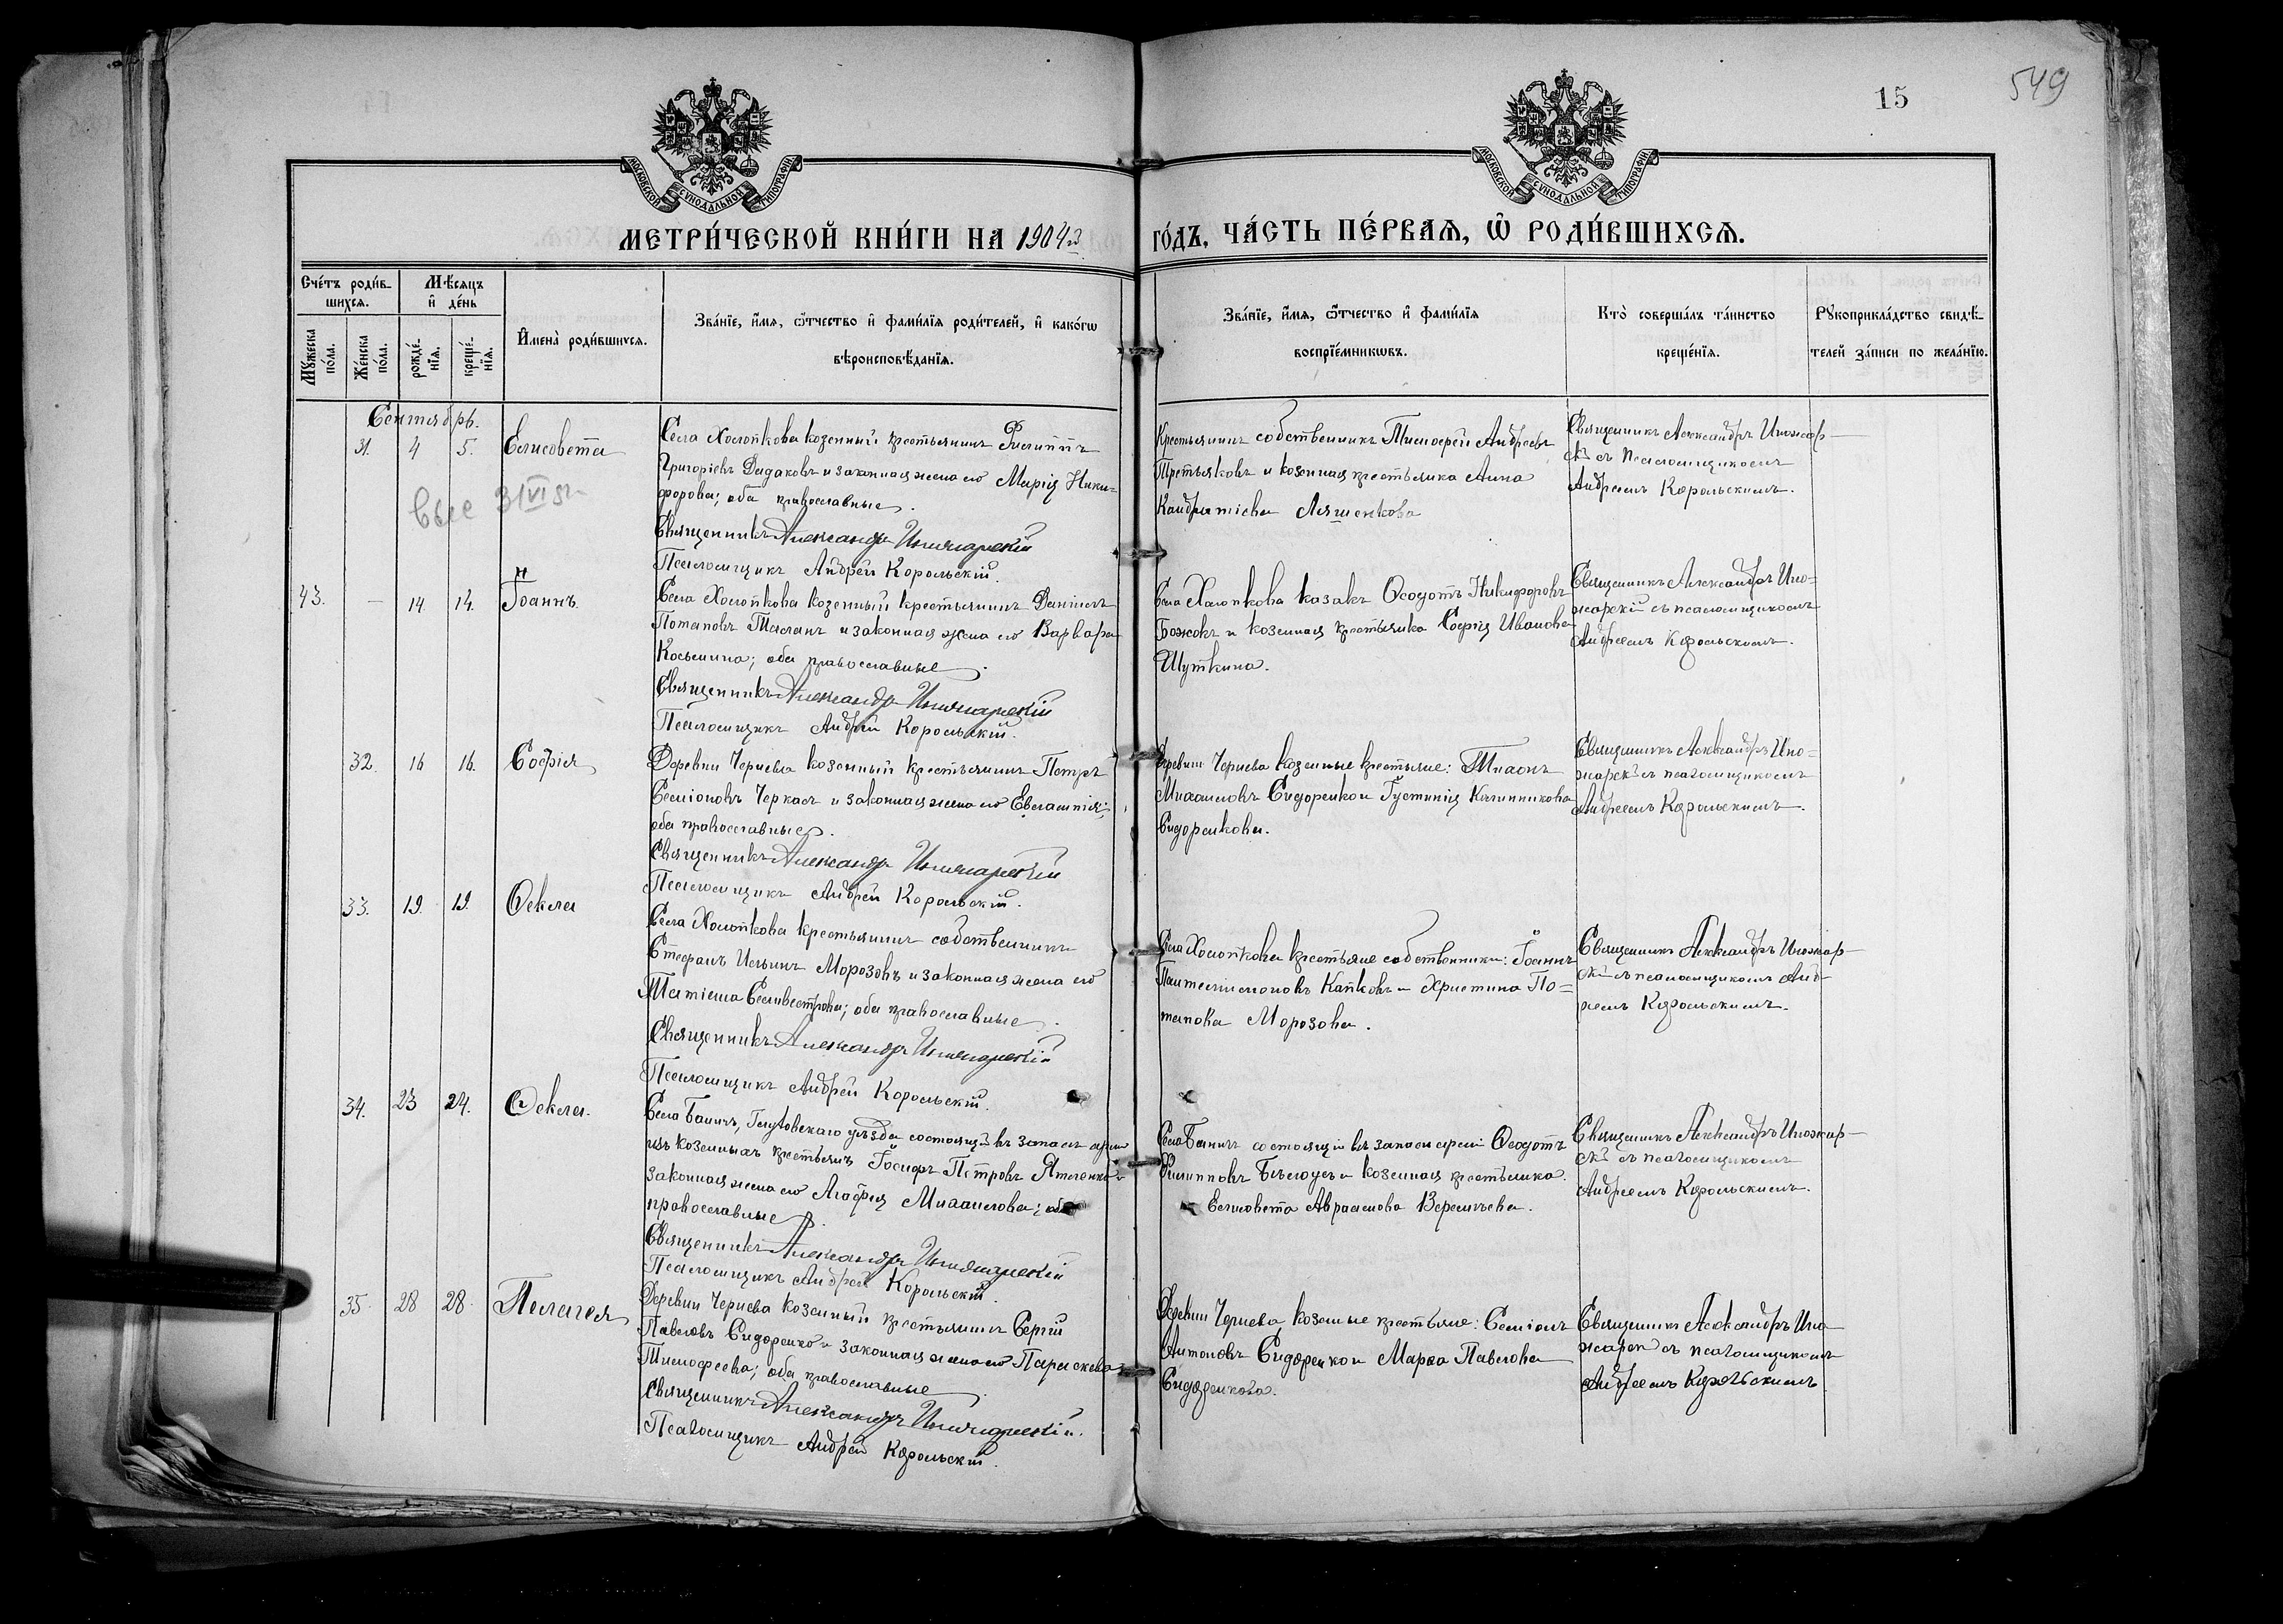 549
15
МОСКОВСКОЙ СѴНОДАЛЬНОЙ ТИПОГРАФІИ
МОСКОВСКОЙ СѴНОДАЛЬНОЙ ТИПОГРАФІИ
МЕТРИ́ЧЕСКОЙ КНИ́ГИ НА 1904й
ГО́ДЪ, ЧА́СТЬ ПЕ́РВАЯ, Ѿ РОДИ́ВШИХСЯ.
Сче́тъ роди́в-
шихся.
Мѣсяцъ
и де́нь
Мꙋжеска по́ла.
Же́нска по́ла.
рожде́-нїя.
креще́-нїя.
Имена̀ роди́вшихся.
Зва́нїе, и́мя, ѻ́тчество и фами́лїя роди́телей, и како́гѡ
вѣроисповѣ́данїя.
Зва́нїе, и́мя, ѻ́тчество и фами́лїя
воспрїе́мникѡвъ.
Кто̀ соверша́лъ та́инство
креще́нїя.
Рꙋкоприкла́дство свидѣ́-
телей за́писи по жела́нїю.
Сентябрь.
31. 4 5. Елисавета
Села Холопкова козенный крестьянинъ Филиппъ
Григоріевъ Дидаковъ и законная жена его Марія Ники-
форова; оба православные.
Священникъ Александръ
Псаломщикъ Андрей Корольскій.
Крестьянинъ собственникъ Тимофей Андреевъ
Третьяковъ и козенная крестьянка Анна
Кондратіева Ляшенкова
Священникъ Александръ
съ псаломщикомъ
Андреемъ Корольскимъ.
43. — 14 14. Іоаннъ.
Села Холопкова козенный крестьянинъ Даніилъ
Потаповъ и законная жена его Варвара
Косьмина; оба православные.
Священникъ Александръ
Псаломщикъ Андрей Корольскій.
Села Холопкова казакъ Ѳеодотъ Никифоровъ
Божокъ и козенная крестьянка Софія Иванова
Шуткина.
Священникъ Александръ
съ псаломщикомъ
Андреемъ Корольскимъ.
32. 16 16. Софія
Деревни Чернева козенный крестьянинъ Петръ
Семіоновъ Черкасъ и законная жена его
оба православные.
Священникъ Александръ
Псаломщикъ Андрей Корольскій.
Деревни Чернева козенные крестьяне:
Михаиловъ Сидоренко и Іустинія Калинникова
Сидоренкова.
Священникъ Александръ
съ псаломщикомъ
Андреемъ Корольскимъ.
33. 19. 19. Ѳекла
Села Холопкова крестьянинъ собственникъ
Стефанъ Ильинъ Морозовъ и законная жена его
Татіана Селивестрова; оба православные.
Священникъ Александръ
Псаломщикъ Андрей Корольскій.
Села Холопкова крестьяне собственники: Іоаннъ
Пантелеимоновъ Капковъ и Христина По-
тапова Морозова.
Священникъ Александръ
съ псаломщикомъ Анд-
реемъ Корольскимъ.
34. 23 24. Ѳекла.
Села Баничъ, Глуховскаго уѣзда состоящій въ запасѣ арміи
изъ козенныхъ крестьянъ Іосифъ Петровъ и
законная жена его Агафія Михаилова; оба
православные.
Священникъ Александръ
Псаломщикъ Андрей Корольскій.
Села Баничъ состоящій въ запасѣ арміи Ѳеодотъ
Филипповъ Бѣлоусъ и козенная крестьянка
Елисавета Авраамова
Священникъ Александръ
съ псаломщикомъ
Андреемъ Корольскимъ.
35. 28 28. Пелагея
Деревни Чернева козенный крестьянинъ Сергій
Павловъ Сидоренко и законная жена его Параскева
Тимофеева; оба православные.
Священникъ Александръ
Псаломщикъ Андрей Корольскій.
Деревни Чернева козенные крестьяне: Семіонъ
Антоновъ Сидоренко и Марѳа Павлова
Сидоренкова.
Священникъ Александръ
съ псаломщикомъ
Андреемъ Корольскимъ